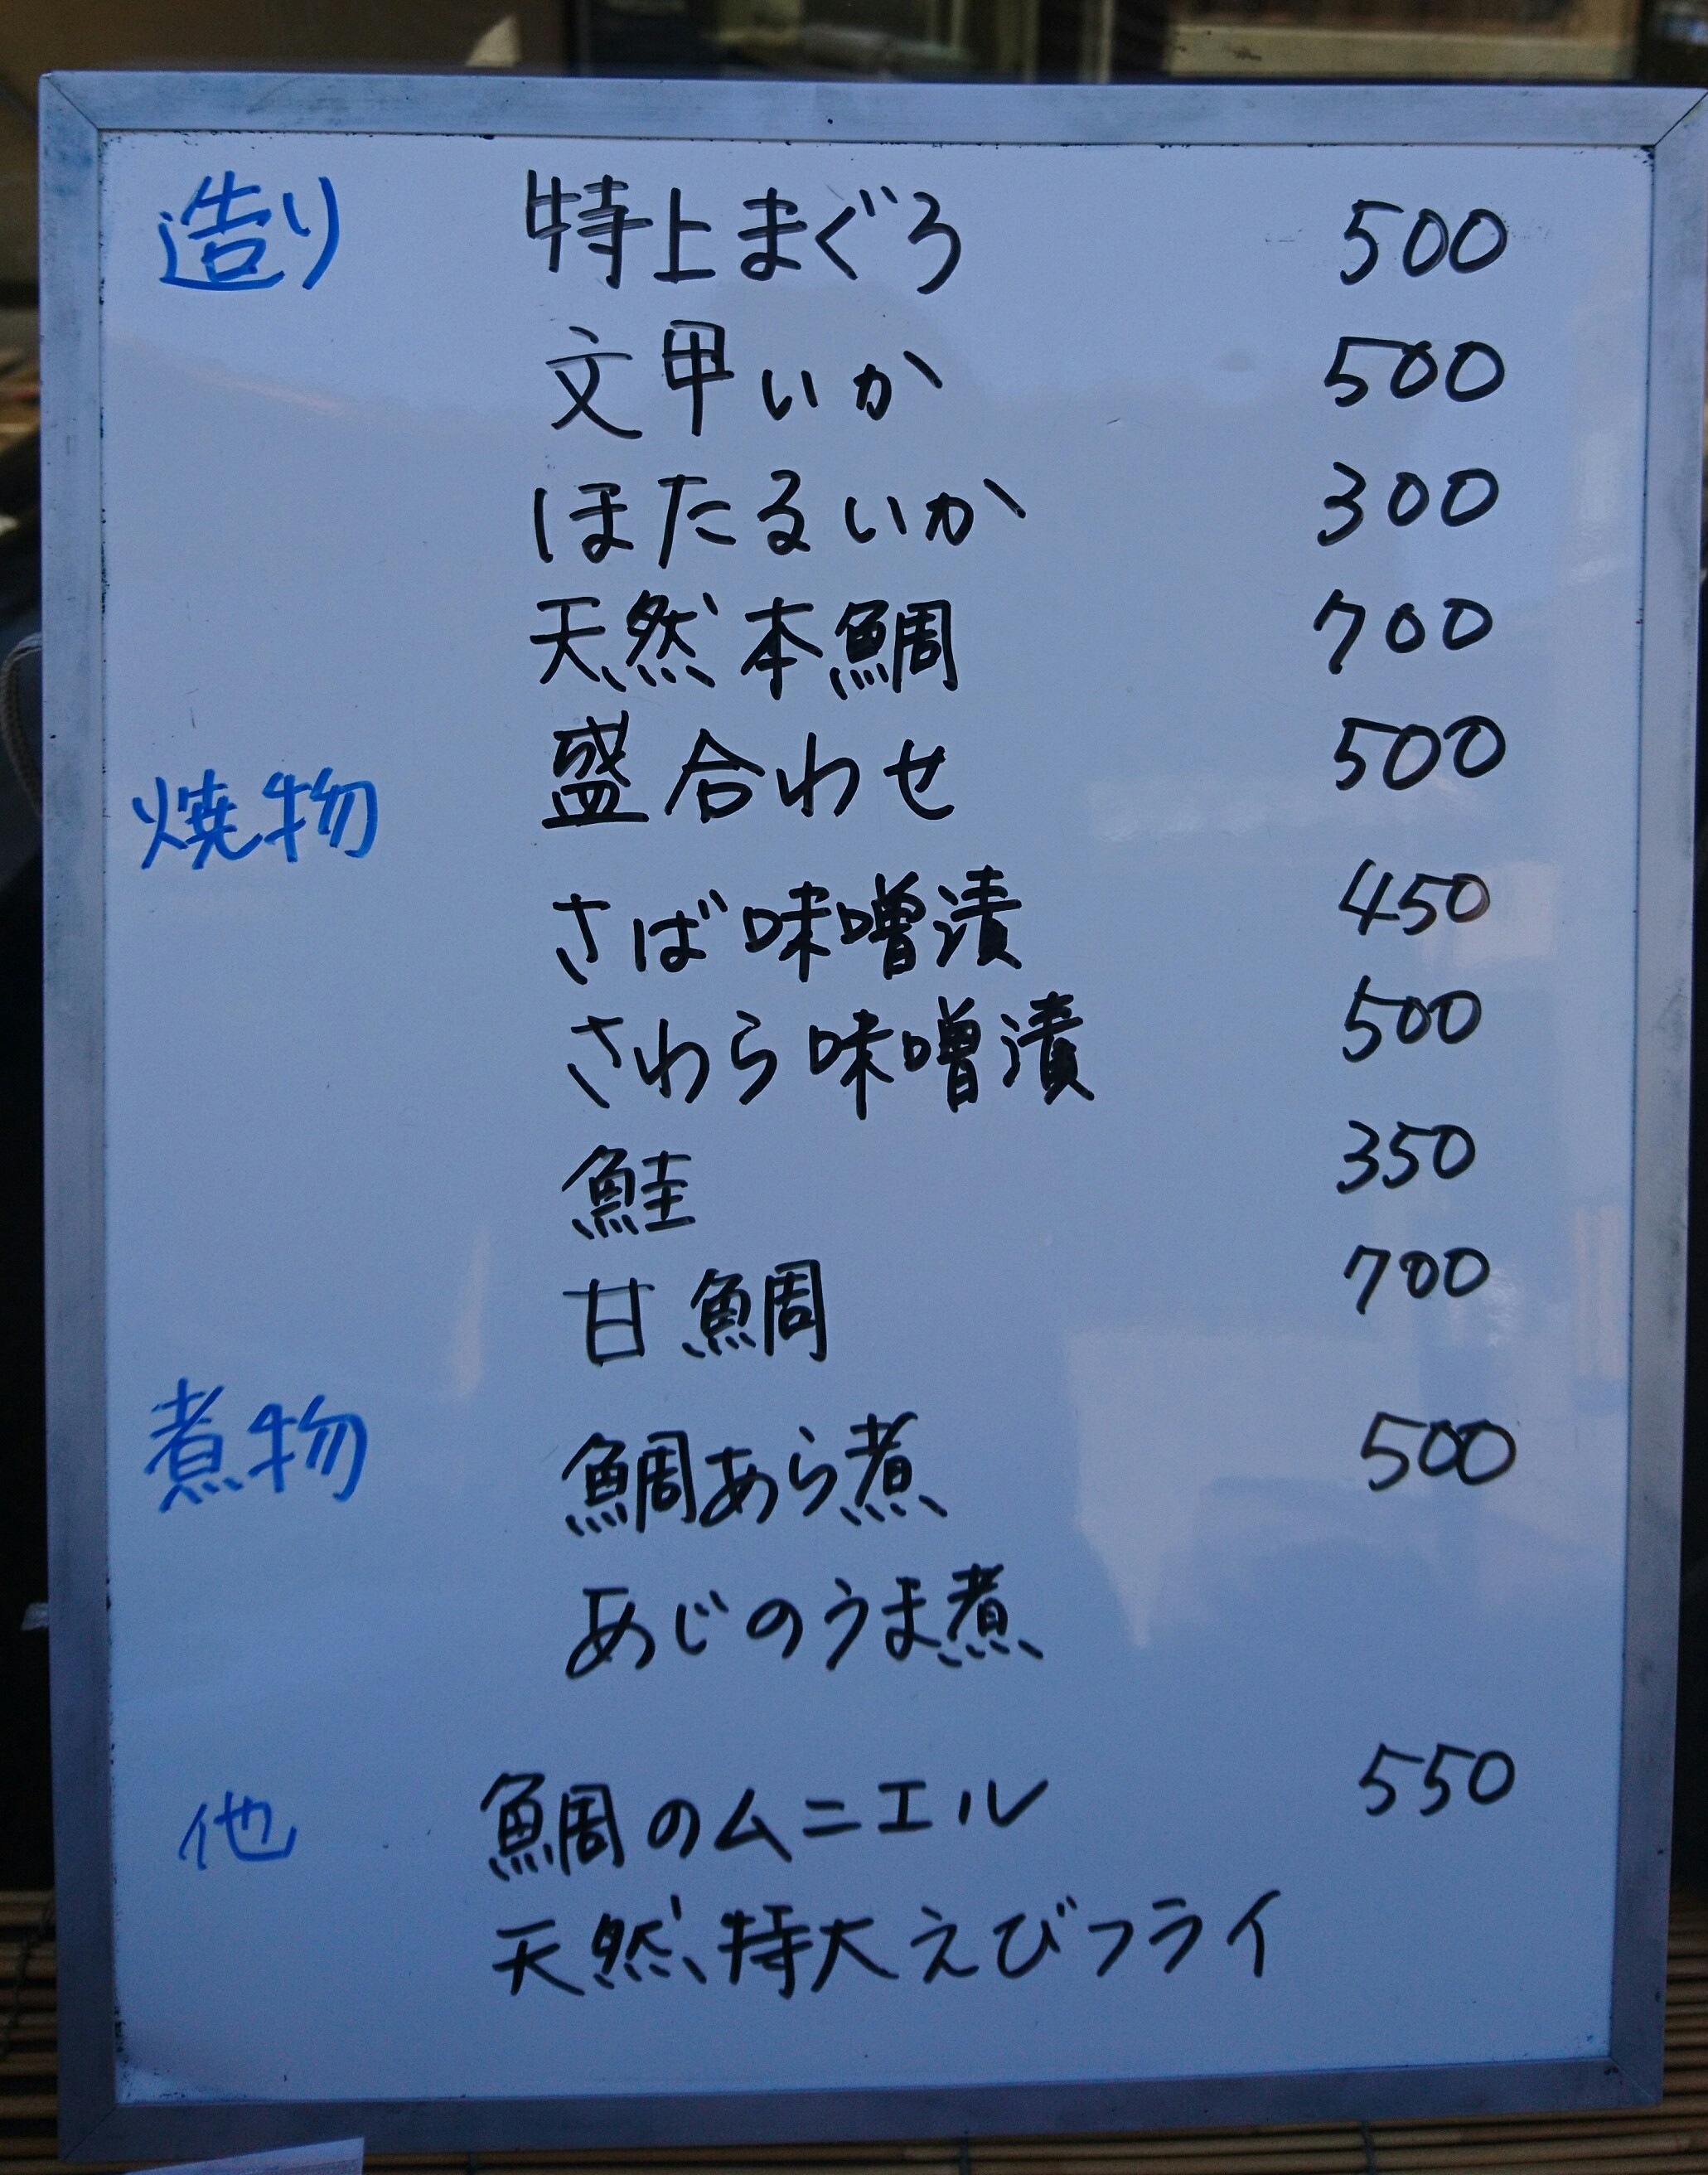 造り 特上まぐろ 500
文甲いか 500
ほたるいか 300
天然本鯛 700
盛合わせ 500
焼物
さば味噌漬 450
さわら味噌漬 500
鮭 350
甘鯛 700
煮物 鯛あら煮 500
あじのうま煮
他 鯛のムニエル 550
天然、特大えびフライ